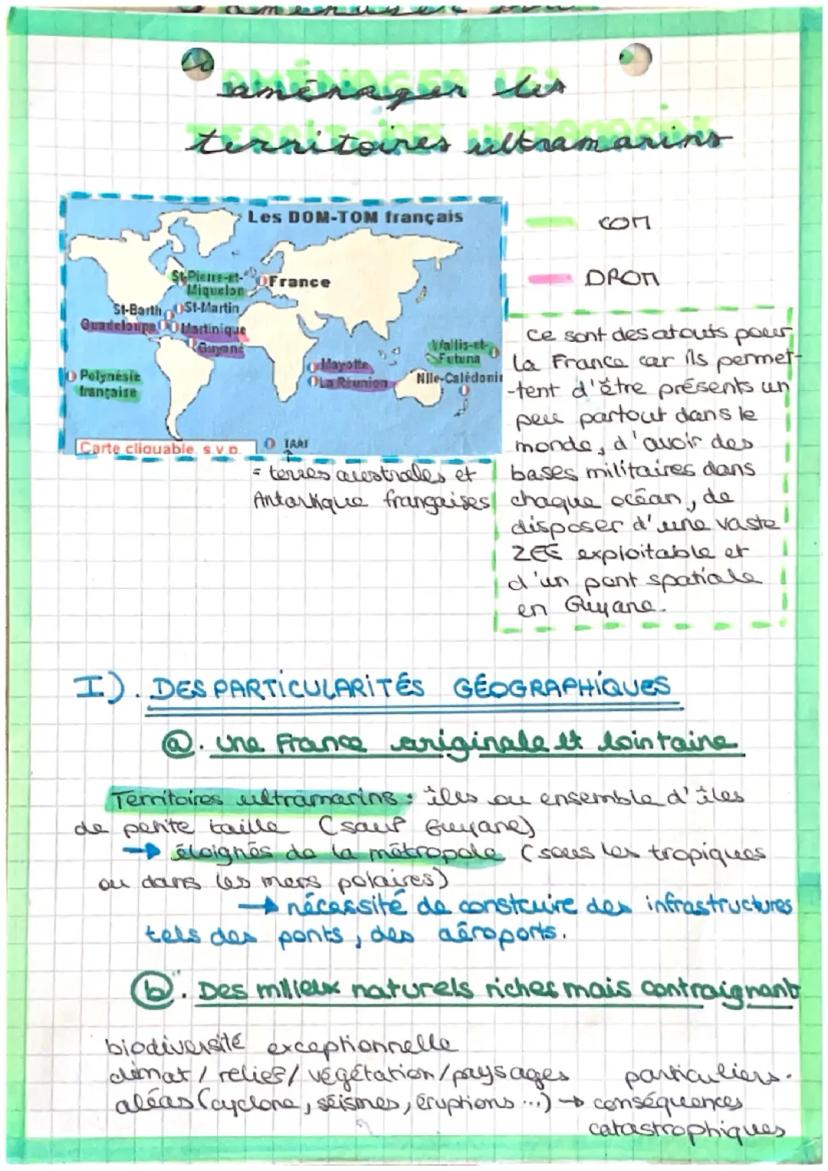 aménager les
territoires ultramarins
Les DOM-TOM français
St-Pierre-et-
Miquelon
France
St-Barth
St-Martin
Guadeloupe
Martinique
Guyane
Mayotte
La Réunion
Wallis-et-
Futuna
Nlle-Calédonie
Polynésie
française
TAAF
Carte cliquable s.v.p.
= terres australes et
Antarktique françaises
COM
DROM
Ce sont des atouts pour
la France car ils permet-
-tent d'être présents un
peu partout dans le
monde, d'avoir des
bases militaires dans
chaque océan, de
disposer d'une vaste
ZEE exploitable et
d'un pont spatiale
en Guyane.
I). DES PARTICULARITÉS GÉOGRAPHIQUES
a. une France originale et lointaine
Territoires ultramarins : îles ou ensemble d'îles
de petite taille (sauf Guyane)
→ éloignés de la métropole (sous les tropiques
ou dans les mers polaires)
→ nécessité de construire des infrastructures
tels des ponts, des aéroports.
b. Des milieux naturels riches mais contraignant
biodiversité exceptionnelle
climat / relief / végétation / paysages particuliers.
aléas (cyclone, séismes, éruptions ...) → conséquences
catastrophiques